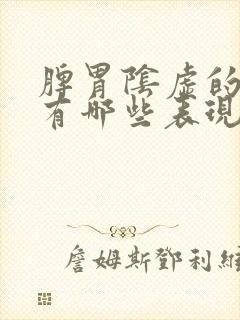 脾胃陰虛的
有哪些表現
詹姆斯鄧利維